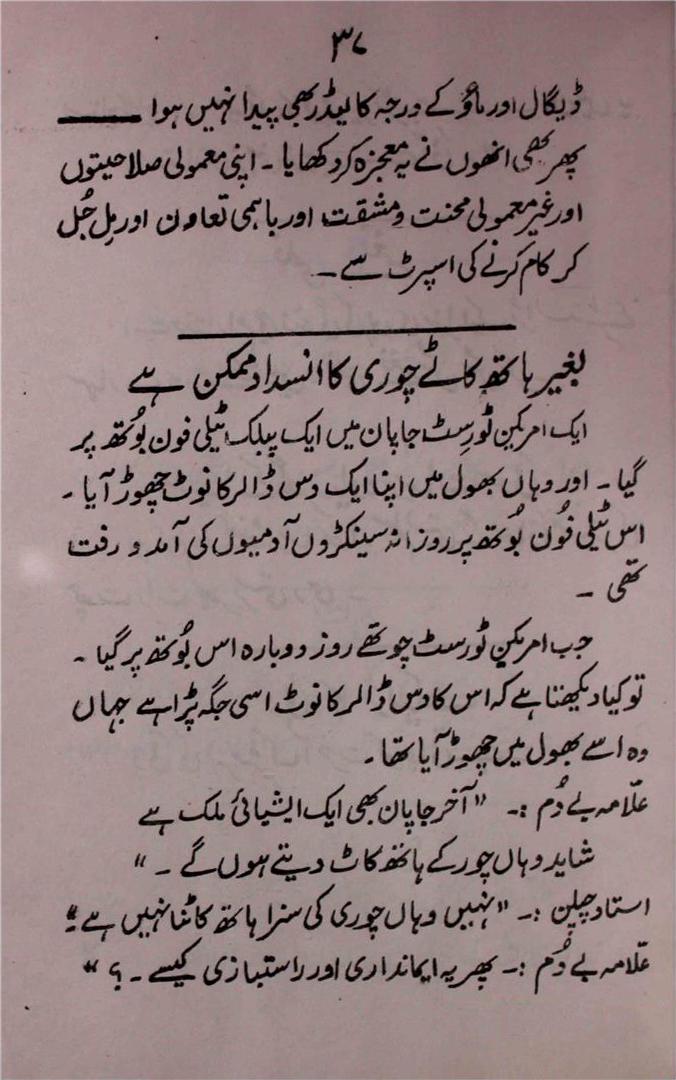 ۳۷
ڈیگال اور ماؤ کے درجہ کا لیڈر بھی پیدا نہیں ہوا ـــــــ
پھر بھی انھوں نے یہ معجزہ کر دکھایا ۔ اپنی معمولی صلاحیتوں
اور غیر معمولی محنت و مشقت اور باہمی تعاون اور مِل جُل
کر کام کرنے کی اسپرٹ سے ۔
بغیر ہاتھ کاٹے چوری کا انسداد ممکن ہے
ایک امریکن ٹورسٹ جاپان میں ایک پبلک ٹیلی فون بُوتھ پر
گیا ۔ اور وہاں بھول میں اپنا ایک دس ڈالر کا نوٹ چھوڑ آیا ۔
اس ٹیلی فُون بُوتھ پر روزانہ سینکڑوں آدمیوں کی آمد و رفت
تھی ۔
جب امریکن ٹورسٹ چوتھے روز دوبارہ اس بُوتھ پر گیا ۔
تو کیا دیکھتا ہے کہ اس کا دس ڈالر کا نوٹ اسی جگہ پڑا ہے جہاں
وہ اسے بھول میں چھوڑ آیا تھا ۔
علّامہ بے دُم :۔ " آخر جاپان بھی ایک ایشیائی ملک ہے
شاید وہاں چور کے ہاتھ کاٹ دیتے ہوں گے ۔ "
استاد چلپن :۔ " نہیں وہاں چوری کی سزا ہاتھ کاٹنا نہیں ہے ۔"
علّامہ بے دُم :۔ پھر یہ ایمانداری اور راستبازی کیسے ۔ ؟ "